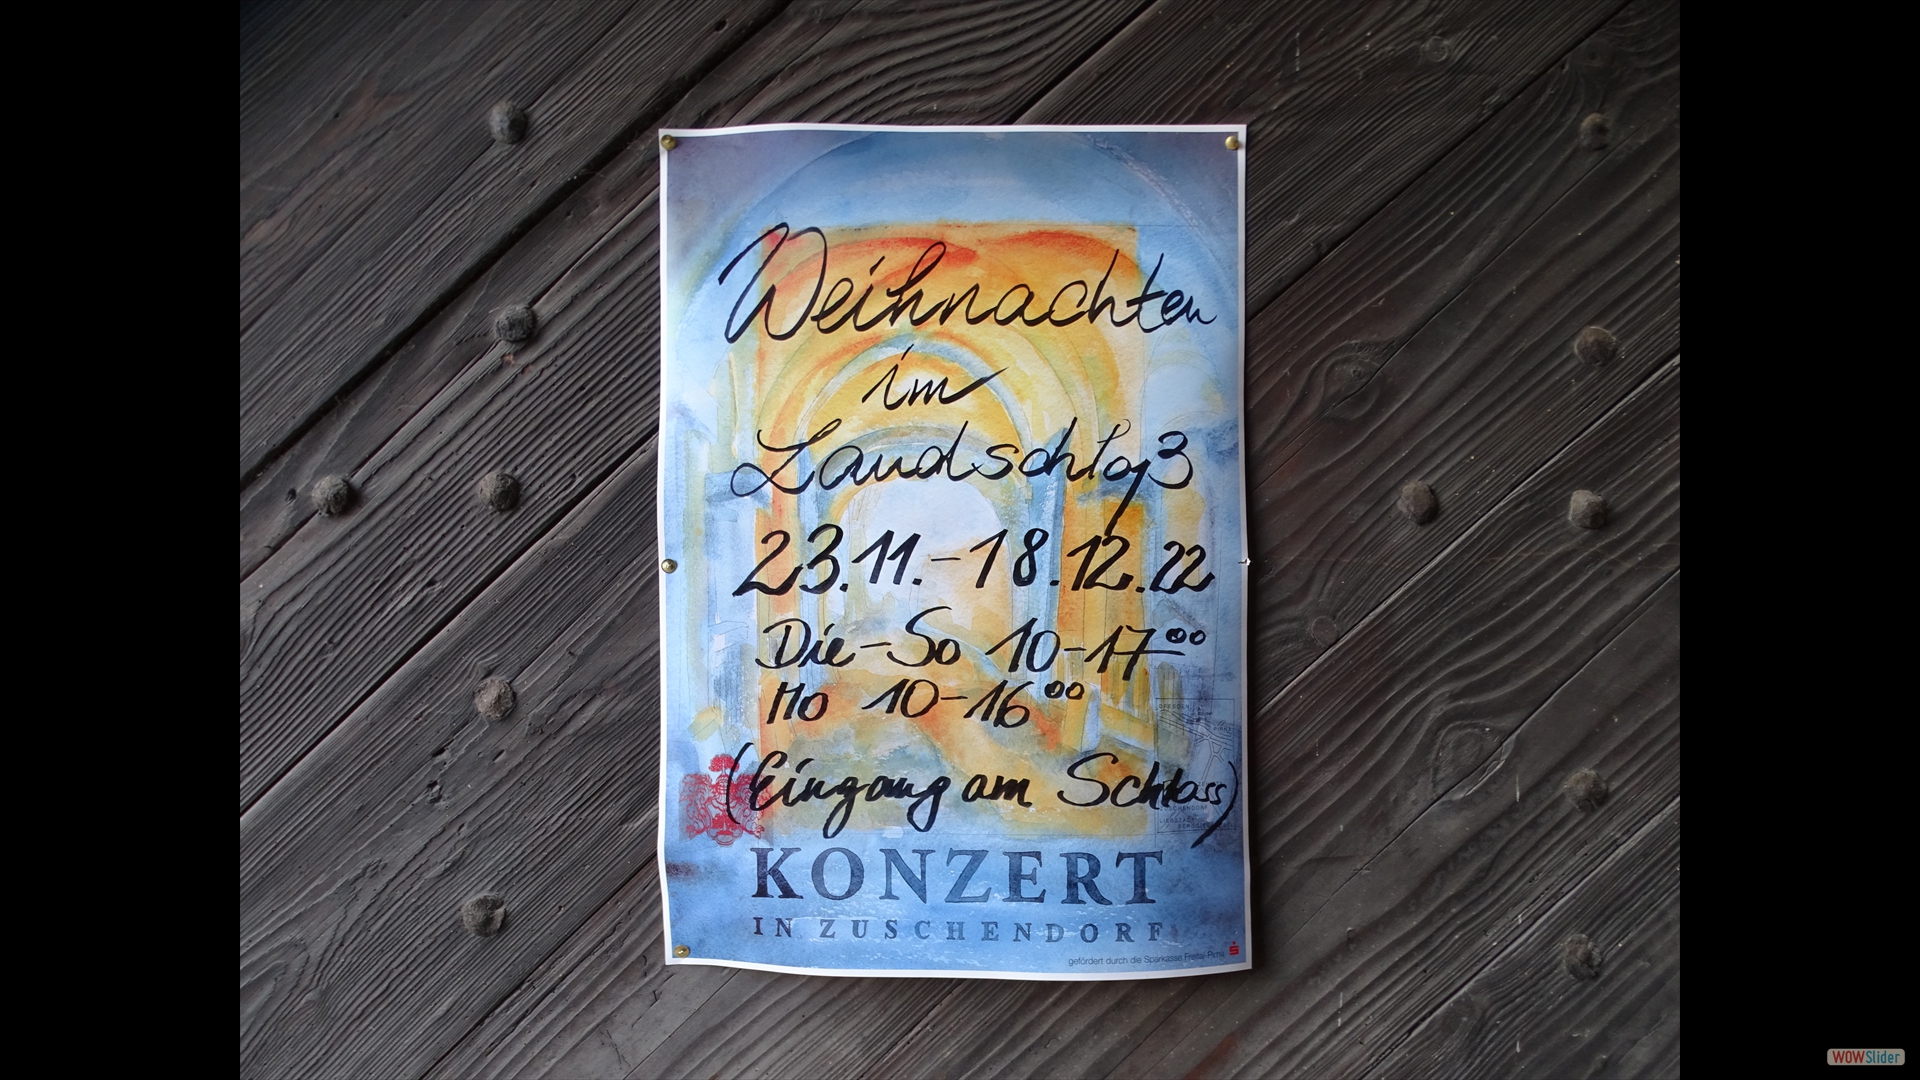 Weihnachten
im
Landschloß
23.11.-18.12.22
Die-So 10-17⁰⁰
Mo 10-16⁰⁰
(Eingang am Schloss)
KONZERT
IN ZUSCHENDORF
gefördert durch die Sparkasse Freital-Pirna
WOWSlider